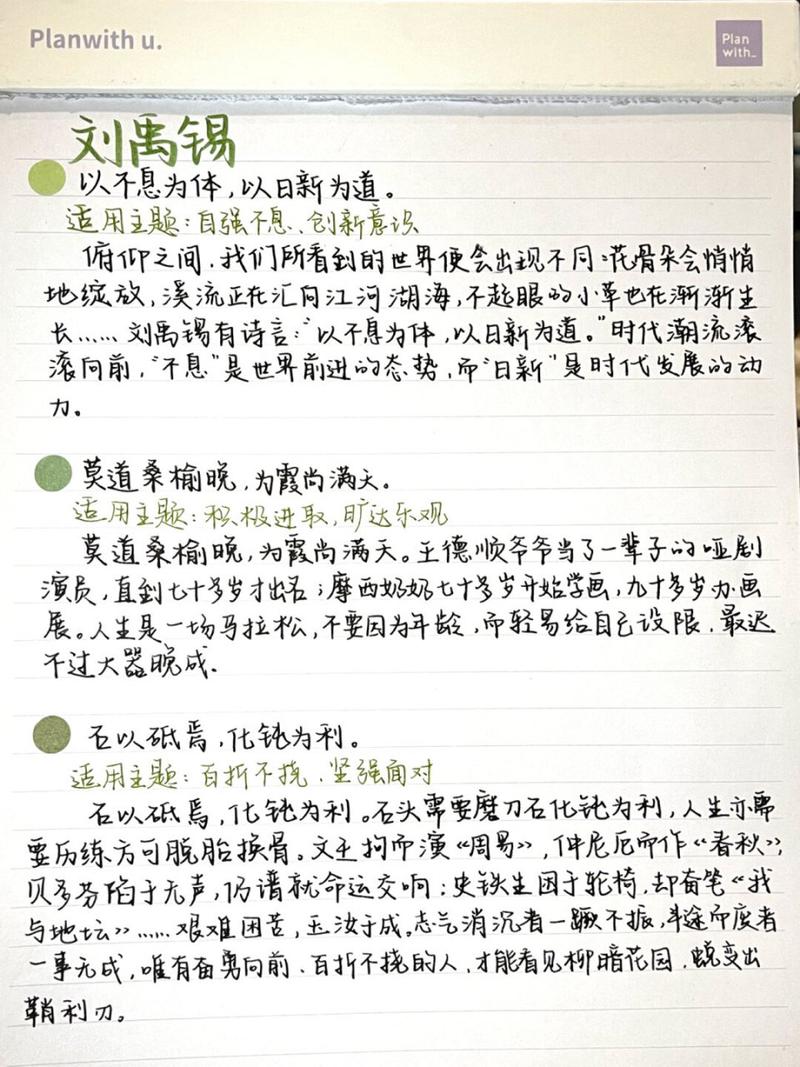 Planwith u.
Plan
with_
刘禹锡
以不息为体，以日新为道。
适用主题：自强不息、创新意识
俯仰之间，我们所看到的世界便会出现不同：花骨朵会悄悄
地绽放，溪流正在汇向江河湖海，不起眼的小草也在渐渐生
长……刘禹锡有诗言：“以不息为体，以日新为道。”时代潮流滚
滚向前，“不息”是世界前进的态势，而“日新”是时代发展的动
力。
莫道桑榆晚，为霞尚满天。
适用主题：积极进取，旷达乐观
莫道桑榆晚，为霞尚满天。王德顺爷爷当了一辈子的哑剧
演员，直到七十多岁才出名；摩西奶奶七十多岁开始学画，九十多岁办画
展。人生是一场马拉松，不要因为年龄，而轻易给自己设限，最迟
不过大器晚成.
石以砥焉，化钝为利。
适用主题：百折不挠、坚强面对
石以砥焉，化钝为利。石头需要磨刀石化钝为利，人生亦需
要历练方可脱胎换骨。文王拘而演《周易》，仲尼厄而作《春秋》；
贝多芬陷于无声，仍谱就命运交响；史铁生困于轮椅，却奋笔《我
与地坛》……艰难困苦，玉汝于成。志气消沉者一蹶不振，半途而废者
一事无成，唯有奋勇向前、百折不挠的人，才能看见柳暗花园，蜕变出
鞘利刃。